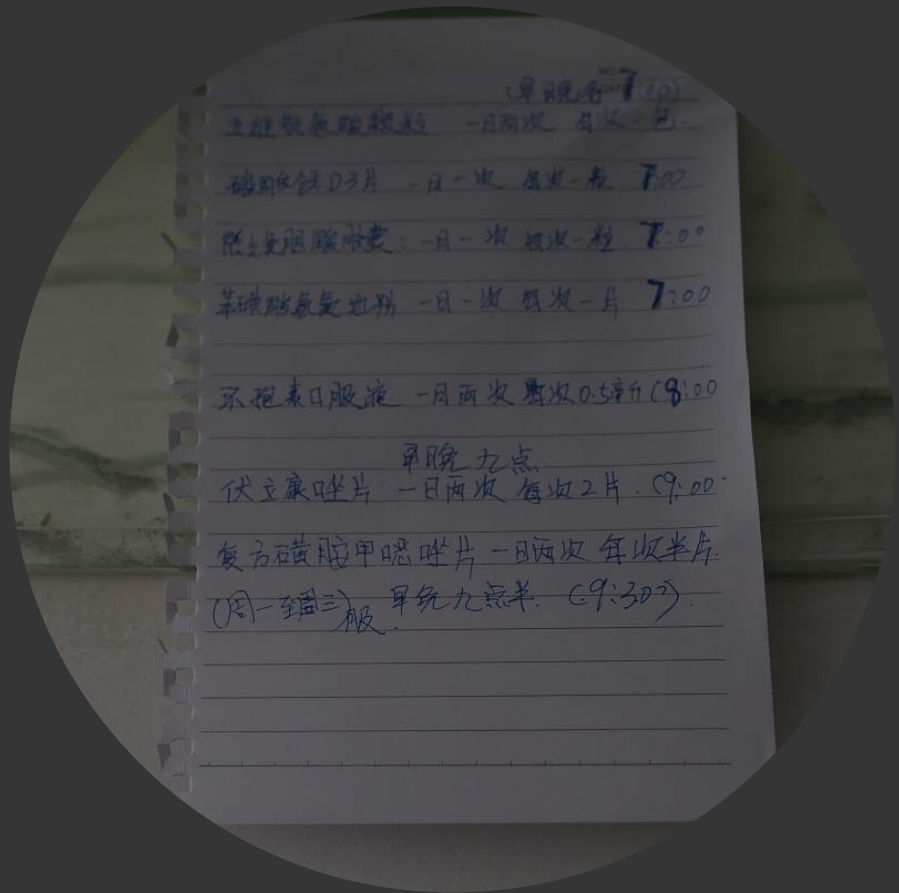 (早晚各7:00)
氨酸颗粒 一日两次 每次一包.
碳酸钙D3片 一日一次 每次一粒 7:00
熊去氧胆酸胶囊: 一日一次 每次一粒. 7:00
苯磺酸氨氯地平 一日一次 每次一片 7:00
环孢素口服液 一日两次 每次0.5毫升(8:00
早晚九点
伏立康唑片 一日两次 每次2片. (9:00
复方磺胺甲噁唑片 一日两次 每次半片.
(周一至周三)服. 早晚九点半. (9:30).